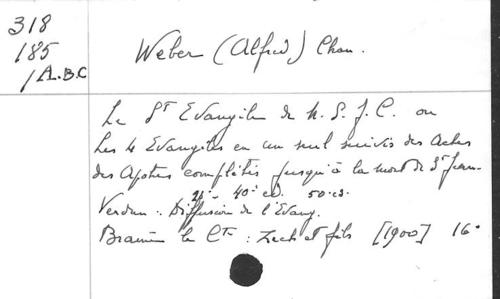 318
185
/A.B.C
Weber (Alfred) Chan.
Le St Evangile de N. S. J. C. ou
Les 4 Evangiles en un seul suivis des Actes
des Apôtres complétés jusqu'à la mort de St Jean.
40e ed. 50 es.
Verdun : Diffusion de l'Evang.
Braine le Cte : Zech et fils [1900] 16°